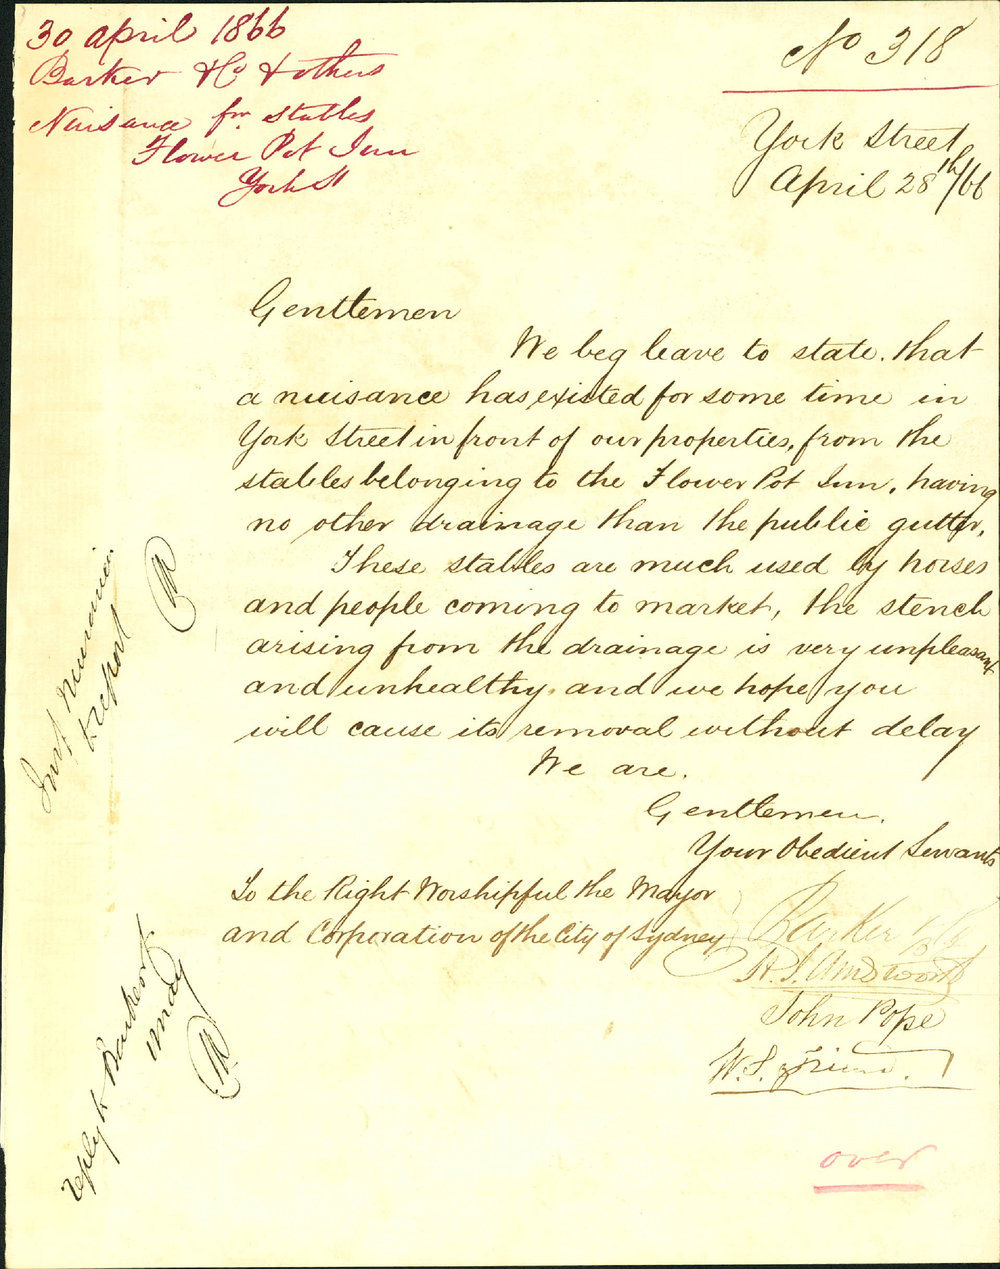 30 April 1866
Barker & Co & others
Nuisance fm stables
Flower Pot Inn
York St
No 318
York Street
April 28th/66
Gentlemen
We beg leave to state, that
a nuisance has existed for some time in
York Street in front of our properties, from the
stables belonging to the Flower Pot Inn, having
no other drainage than the public gutter.
These stables are much used by horses
and people coming to market, the stench
arising from the drainage is very unpleasant
and unhealthy, and we hope you
will cause its removal without delay
We are.
Gentlemen.
Your Obedient Servants
To the Right Worshipful the Mayor
and Corporation of the City of Sydney
Barker & Co
John Pope
W. S. Friend.
Report
reply to Barker &
1 May
over